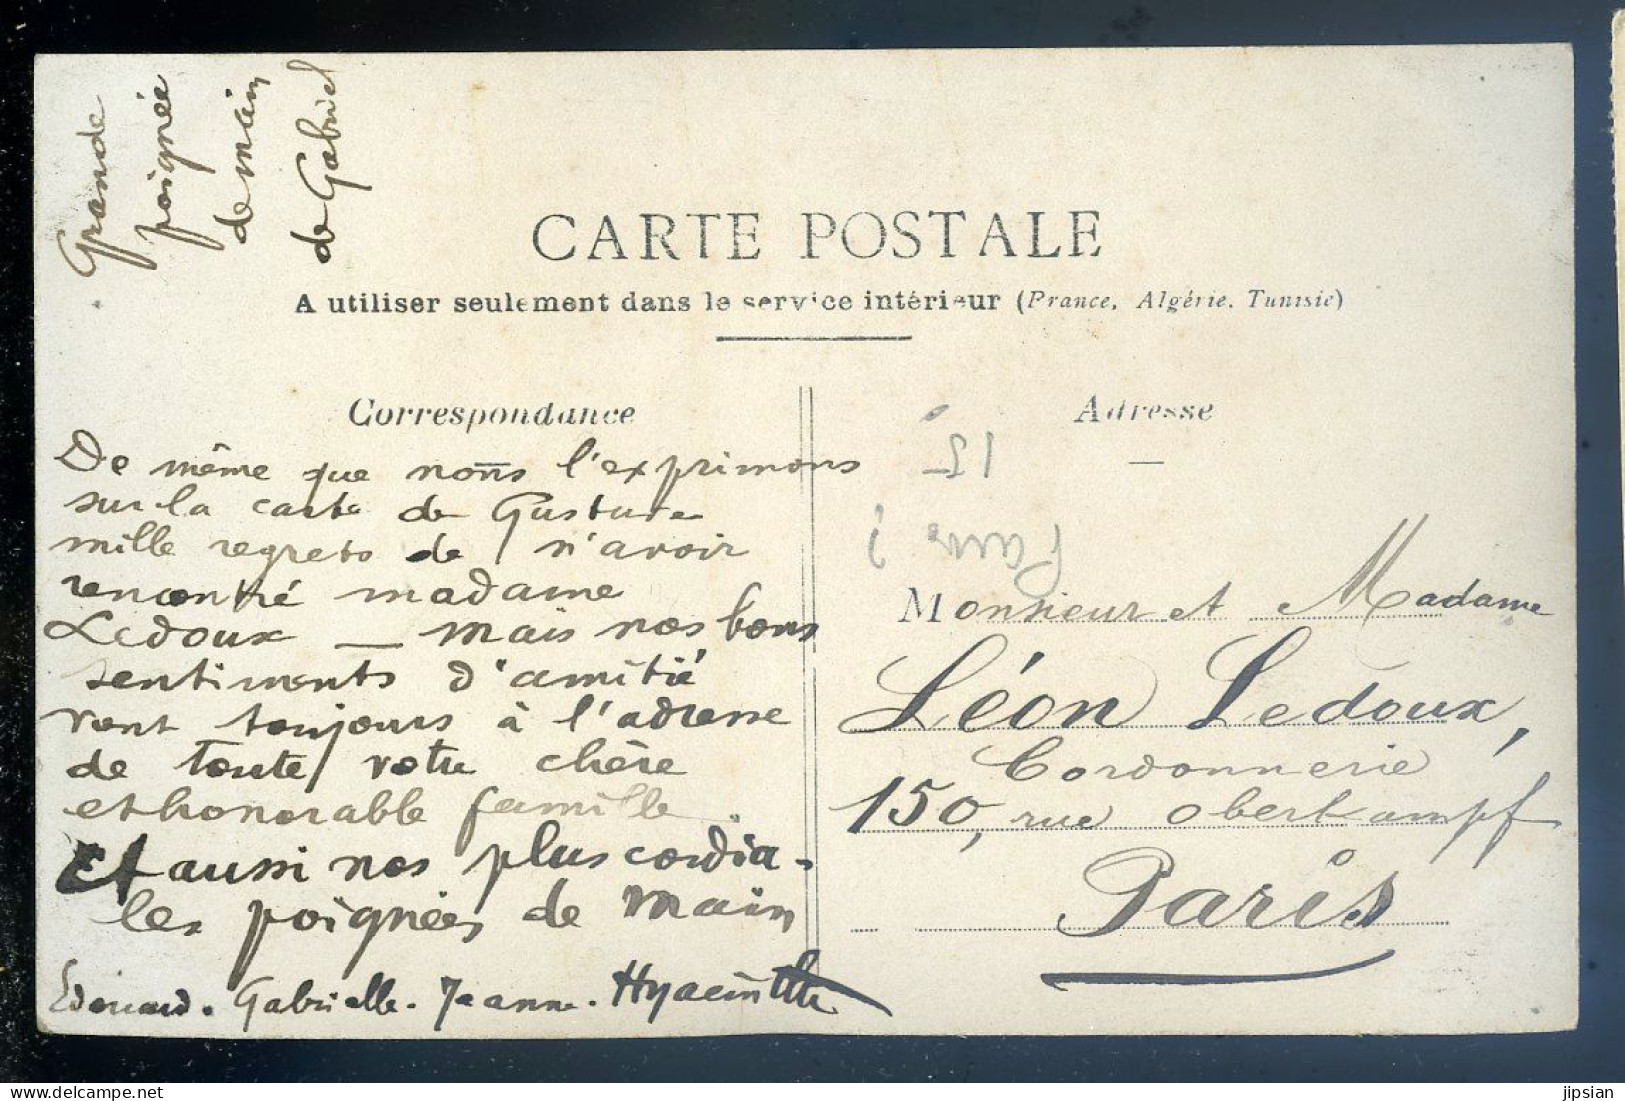 Grande
poignée
de main
de Gabriel
CARTE POSTALE
A utiliser seulement dans le service intérieur (France, Algérie, Tunisie)
Correspondance
De même que nous l'exprimons
sur la carte de Gustave
mille regrets de n'avoir
rencontré madame
Ledoux — mais nos bons
sentiments d'amitié
vont toujours à l'adresse
de toute votre chère
et honorable famille
Et aussi nos plus cordia-
les poignées de main
Edouard. Gabrielle. Jeanne. Hyacinthe
Adresse
15
Paris ?
Monsieur et Madame
Léon Ledoux,
Cordonnerie
150, rue Oberkampf
Paris
jipsian